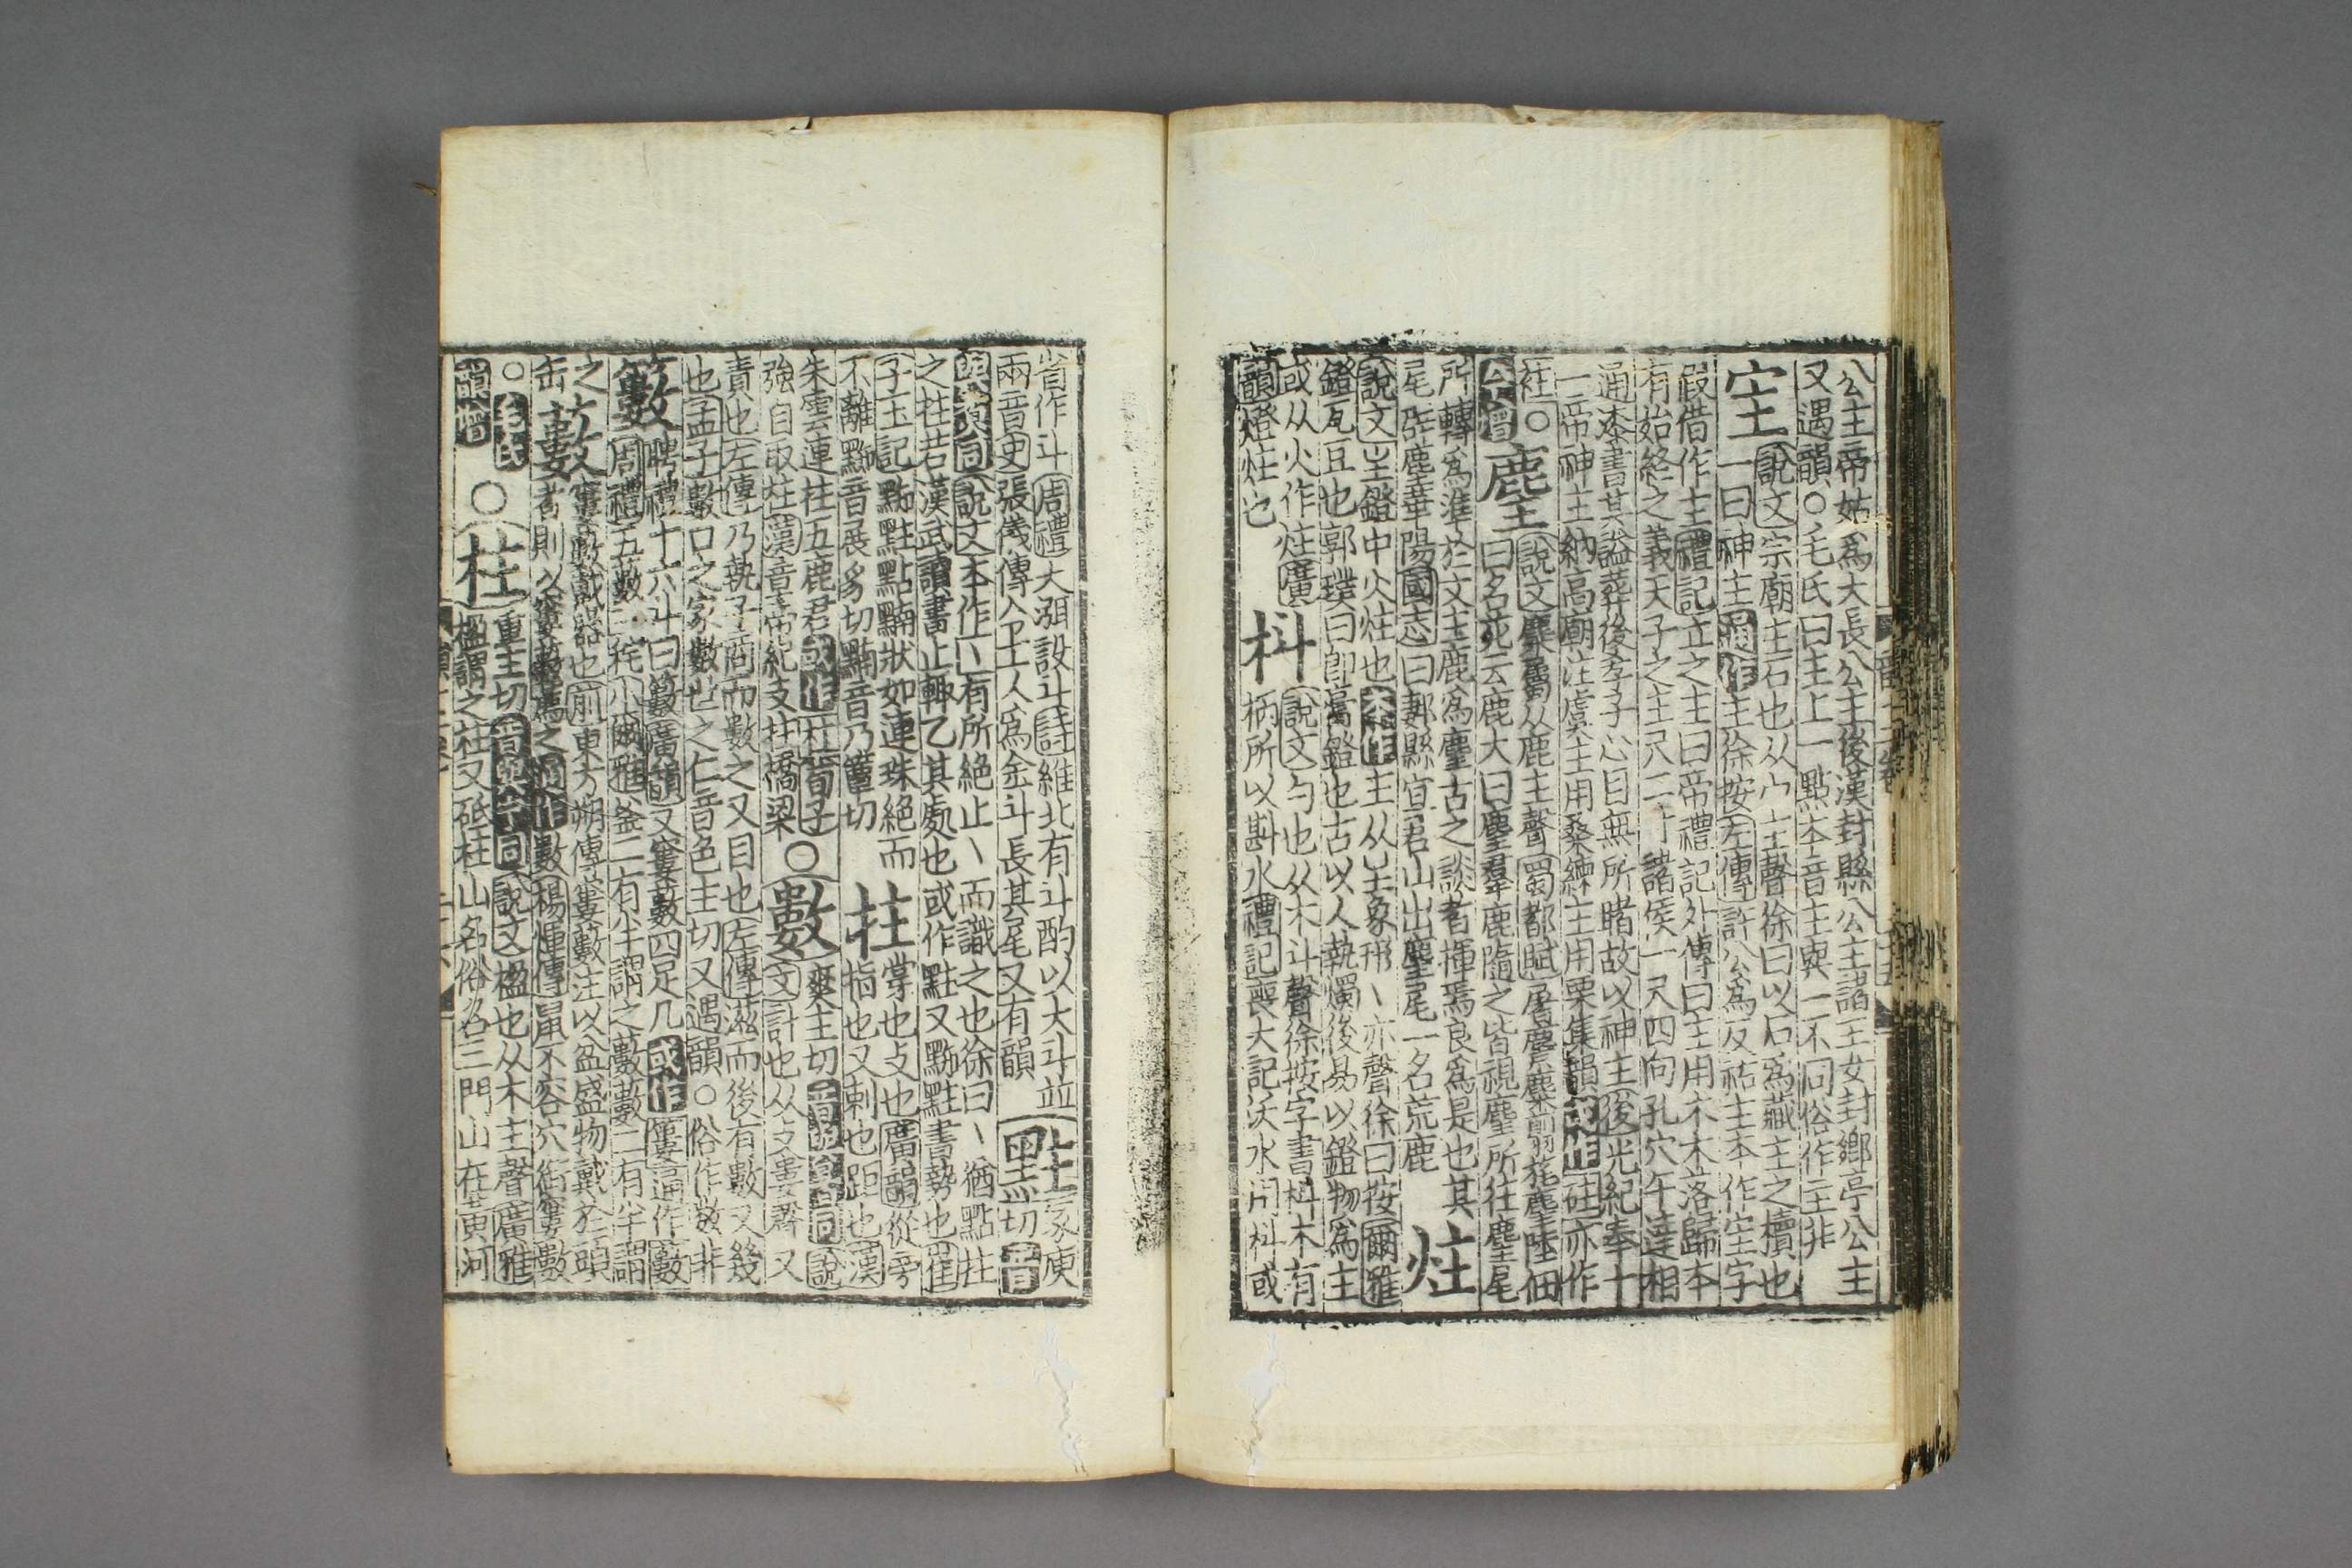 公主帝姑爲大長公主後漢封縣公主諸王女封鄉亭公主
又遇韻○毛氏曰主上一點本音主與一不同俗作主非
宔說文宗廟主石也从宀主聲徐曰以石爲藏主之櫝也
一曰神主通作主徐按左傳許公爲反祏主本作宔字
假借作主禮記立之主曰帝禮記外傳曰主用木木落歸本
有始終之義天子之主尺二寸諸侯一尺四向孔穴午達相
通漆書其謚葬後孝子心目無所睹故以神主後光紀奉十
一帝神主納高廟注虞主用桑練主用栗集韻或作砫亦作
𥙑○麈說文麋屬从鹿主聲蜀都賦屠麖麋翦旄麈埤佃
公增曰名苑云鹿大曰麈羣鹿隨之皆視麈所往麈尾
所轉爲準於文主鹿爲麈古之談者揮焉良爲是也其
尾辟塵華陽國志曰郪縣宜君山出麈尾一名荒鹿
炷說文主鐙中火炷也本作主从𡈼象形丶亦聲徐曰按爾雅
鐙瓦豆也郭璞曰卽膏鐙也古以人執燭後易以鐙物爲主
或从火作炷廣韻燈炷也
枓說文勺也从木斗聲徐按字書枓木有
柄所以斟水禮記喪大記沃水用枓或
省作斗周禮大漏設斗詩維北有斗酌以大斗並冢庾
兩音史張儀傳令工人爲金斗長其尾又有韻
黈切音
與主同說文本作丶有所絕止丶而識之也徐曰丶猶點拄
之拄若漢武讀書止輒乙其處也或作黈又黝黈書勢也崔
子玉記黝黈點䵵狀如連珠絕而
不離黝音展豸切䵵音乃簟切
拄掌也攴也廣韻從旁
指也又剌也距也漢
朱雲連拄五鹿君或作柱荀子
強自取柱漢章帝紀支拄橋梁
○數爽主切音與
同說文計也从攴婁聲又
責也左傳乃執子商而數之又目也左傳滋而後有數又幾
也孟子數口之家數世之仁音色主切又遇韻○俗作数非
籔聘禮十六斗曰籔廣韻又窶藪四足几或作簍通作藪
周禮五藪三秅小爾雅釜二有半謂之藪藪二有半謂
之缶
藪窶藪戴器也前東方朔傳窶藪注以盆盛物戴於頭
者則以窶藪薦之通作數楊惲傳鼠不容穴銜窶數
○毛氏
韻增
○柱重主切音與宁同說文楹也从木主聲廣雅
楹謂之柱又砥柱山名俗名三門山在黃河